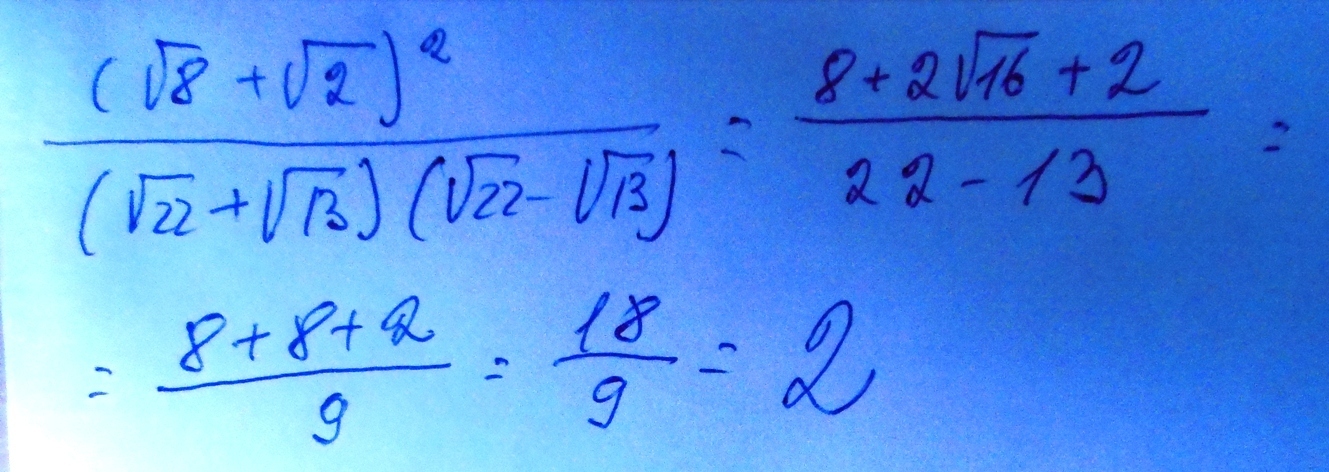 (√8 + √2)² / (√22 + √13)(√22 - √13) = 8 + 2√16 + 2 / 22 - 13 =
= 8 + 8 + 2 / 9 = 18 / 9 = 2